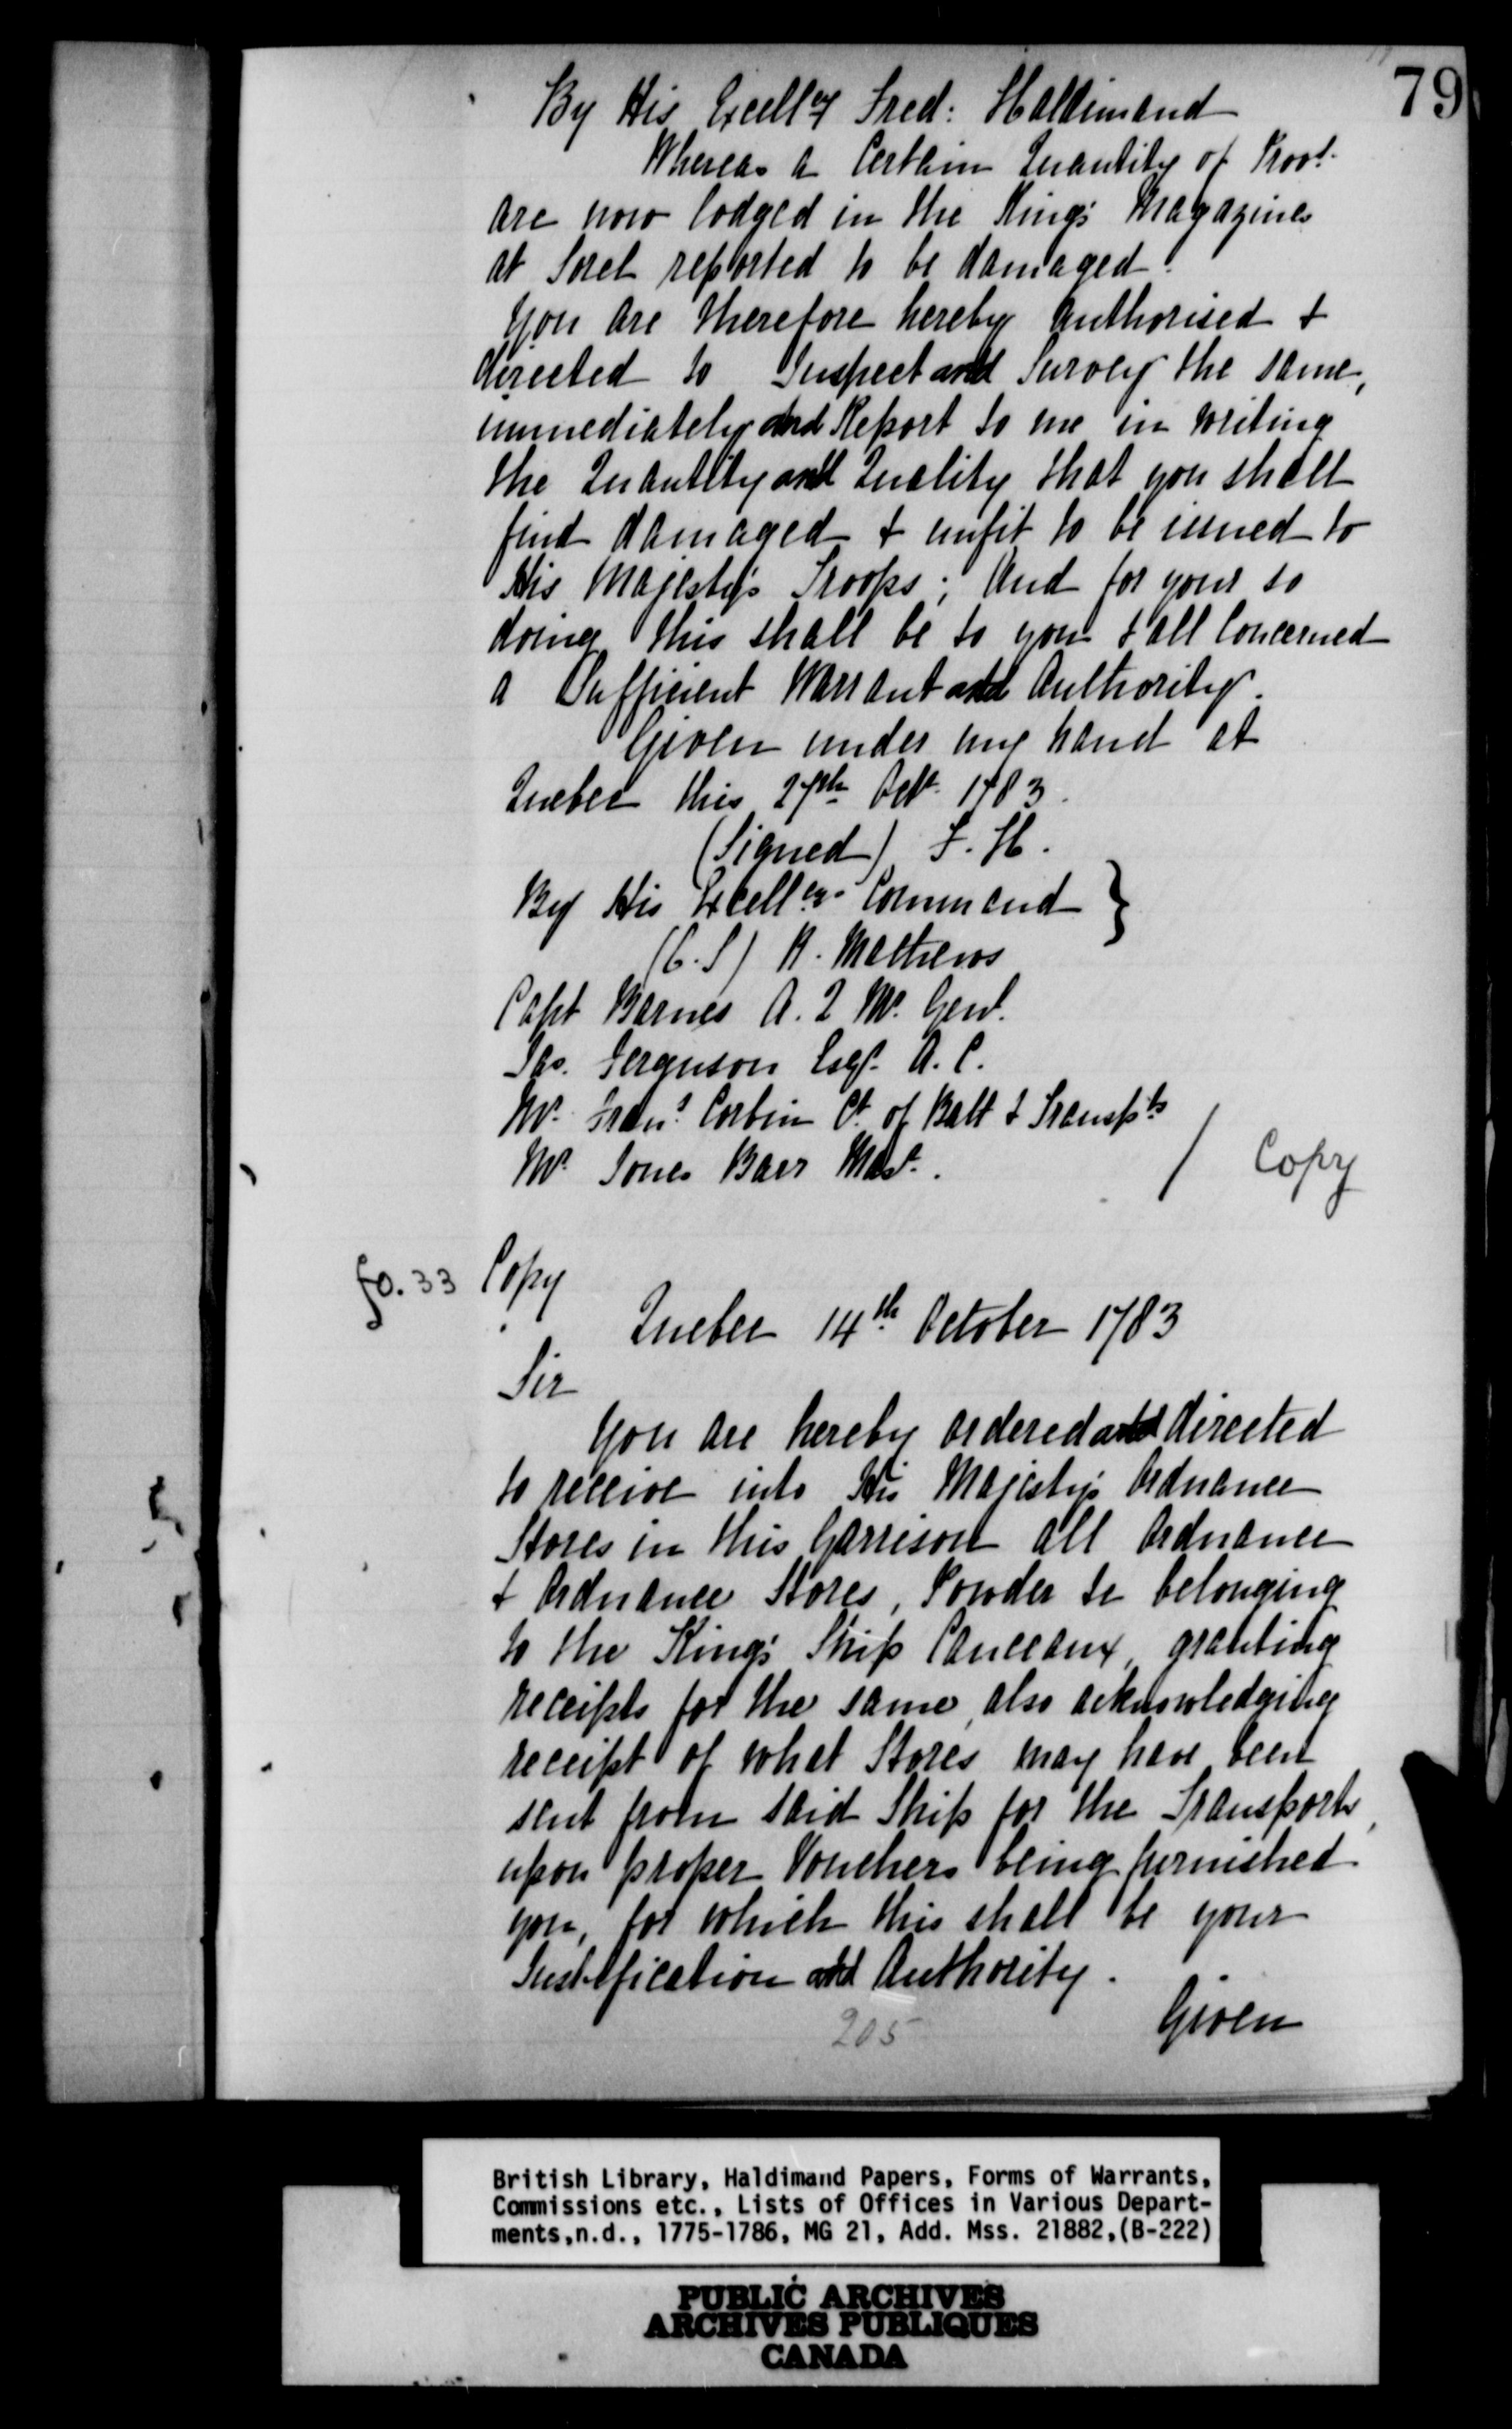 79
By His Excell^cy Fred: Haldimand
Whereas a Certain Quantity of Prov^s.
are now lodged in the King's Magazines
at Sorel reported to be damaged.
You are therefore hereby Authorised &
directed to Inspect and Survey the same,
immediately and Report to me in writing
the Quantity and Quality that you shall
find damaged & unfit to be issued to
His Majesty's Troops; And for your so
doing this shall be to you & all Concerned
a Sufficient Warrant and Authority.
Given under my hand at
Quebec this 27th Oct^r. 1783.
(Signed) F. H.
By His Excell^cys Command }
(C.S) R. Mathews
Capt Barnes A. Q M^r. Gen^l.
Jas. Ferguson Esq^r. A. C.
M^r. Fran^s. Corbin C^t. of Batt & Transp^ts
M^r. Jones Barr Mast^r.
/ Copy
fo. 33 Copy
Quebec 14^th October 1783
Sir
You are hereby ordered and directed
to receive into His Majesty's Ordnance
Stores in this Garrison all Ordnance
& Ordnance Stores, Powder &c belonging
to the King's Ship Canceaux, granting
receipts for the same, also acknowledging
receipt of what Stores may have been
sent from said Ship for the Transports,
upon proper Vouchers being furnished
you, for which this shall be your
Justification and Authority.
Given
205
British Library, Haldimand Papers, Forms of Warrants,
Commissions etc., Lists of Offices in Various Depart-
ments,n.d., 1775-1786, MG 21, Add. Mss. 21882,(B-222)
PUBLIC ARCHIVES
ARCHIVES PUBLIQUES
CANADA